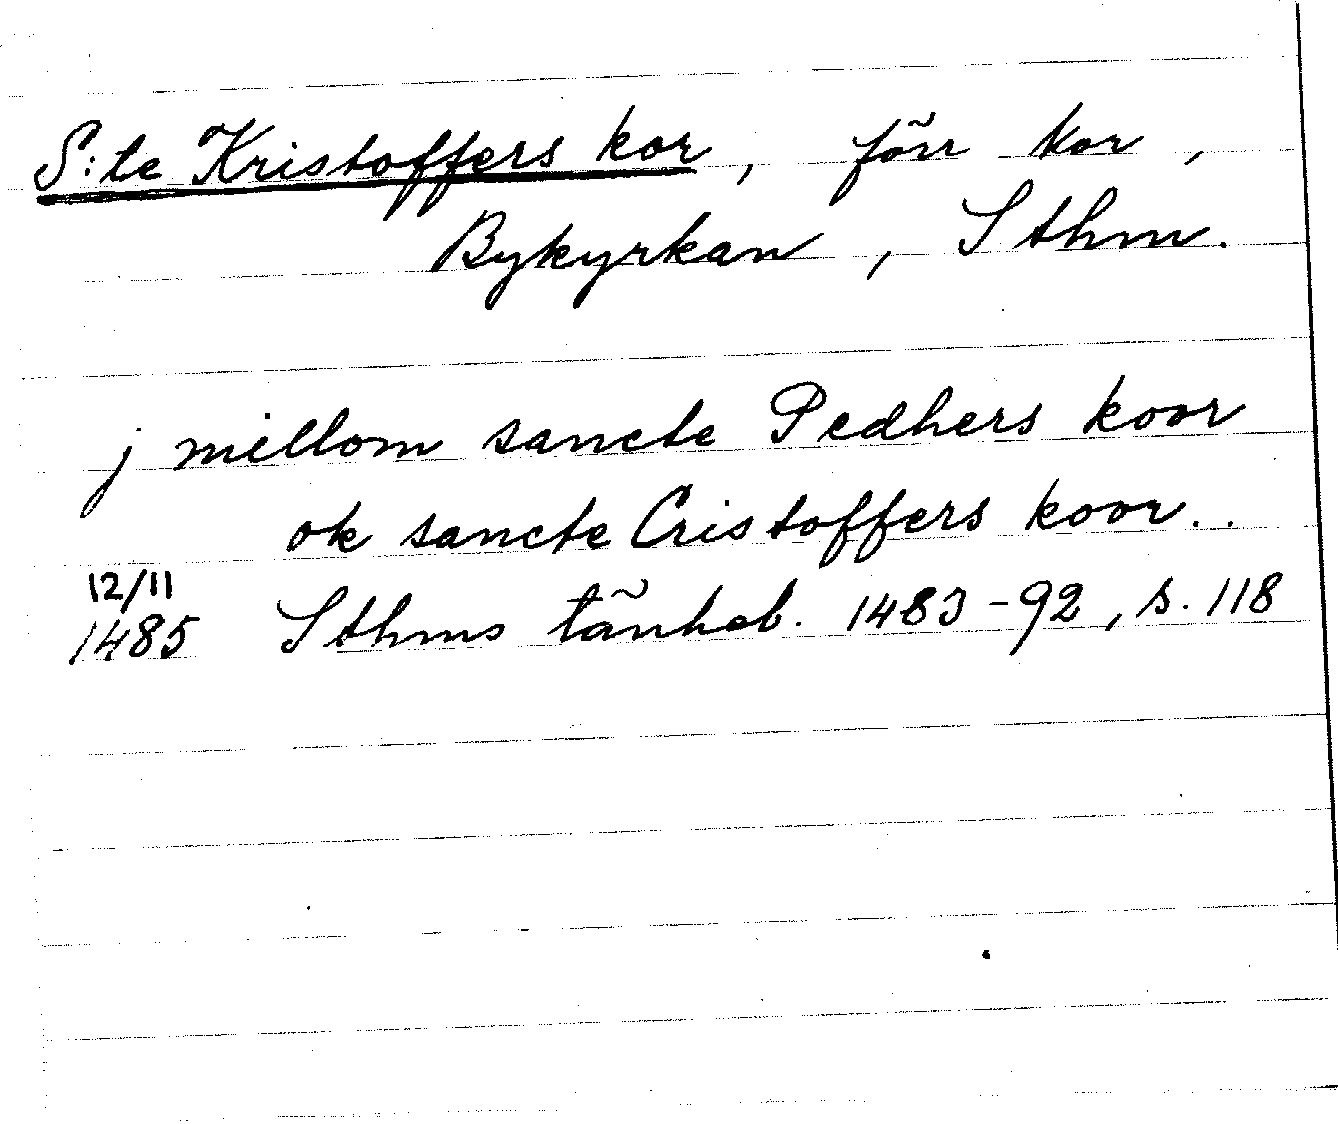 S:te Kristoffers kor, förr kor,
Bykyrkan, Sthm.
j mellom sancte Pedhers koor
ok sancte Cristoffers koor..
12/11
1485 Sthms tänkeb. 1483-92, s. 118